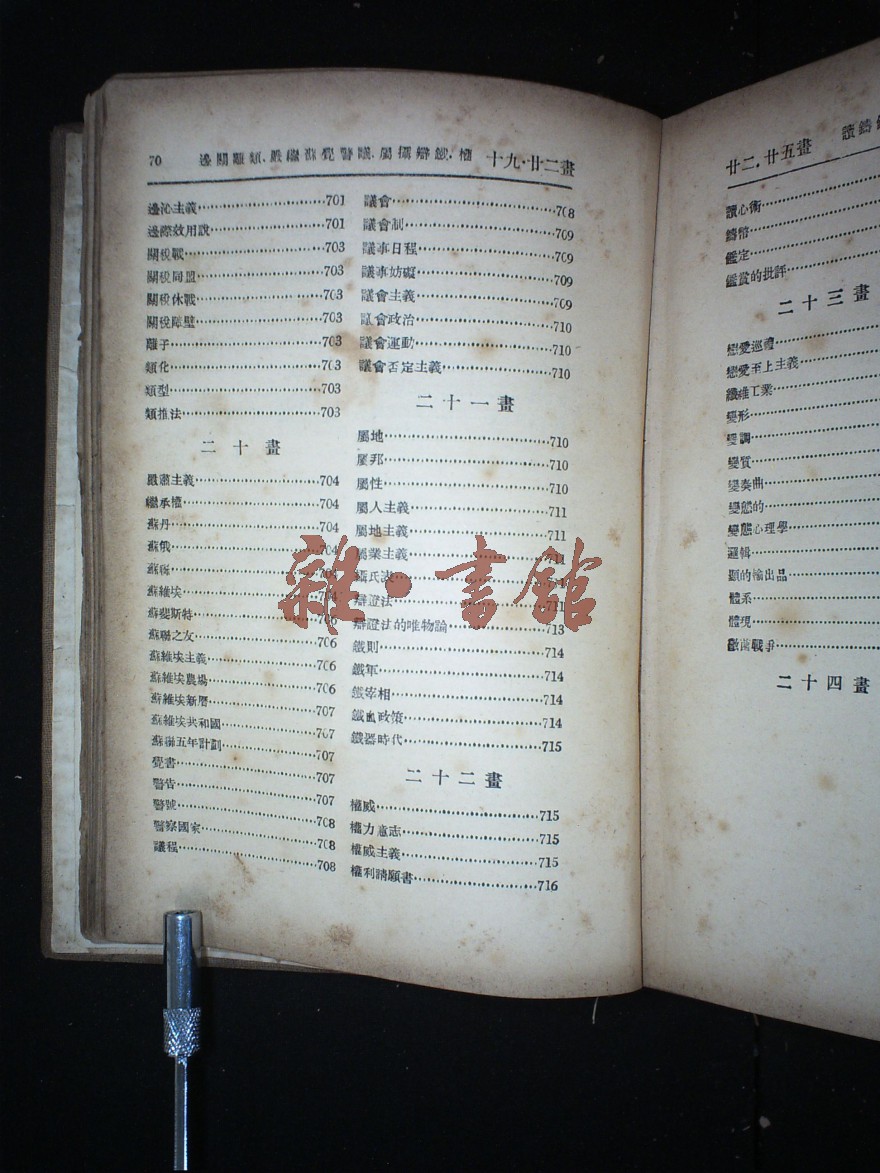 70 邊關離類.嚴繼蘇覺警議.屬攝辯鐵.權 十九·廿二畫
邊沁主義 701
邊際效用說 701
關稅戰 703
關稅同盟 703
關稅休戰 703
關稅障壁 703
離子 703
類化 703
類型 703
類推法 703
二十畫
嚴肅主義 704
繼承權 704
蘇丹 704
蘇俄 704
蘇維埃
蘇斐斯特 706
蘇聯之友 706
蘇維埃主義 706
蘇維埃農場 706
蘇維埃新曆 707
蘇維埃共和國 707
蘇聯五年計劃 707
覺書 707
警告 707
警號 708
警察國家 708
議程 708
議會 708
議會制 709
議事日程 709
議事妨礙 709
議會主義 709
議會政治 710
議會運動 710
議會否定主義 710
二十一畫
屬地 710
屬邦 710
屬性 710
屬人主義 711
屬地主義 711
屬業主義 711
攝氏表
辯證法 711
辯證法的唯物論 713
鐵則 714
鐵軍 714
鐵宰相 714
鐵血政策 714
鐵器時代 715
二十二畫
權威 715
權力意志 715
權威主義 715
權利請願書 716
雜·書館
廿二.廿五畫 讀鑄
讀心術
鑄幣
鑑定
鑑賞的批評
二十三畫
戀愛巡禮
戀愛至上主義
纖維工業
變形
變調
變質
變奏曲
變態的
變態心理學
邏輯
顯的輸出品
體系
體現
二十四畫